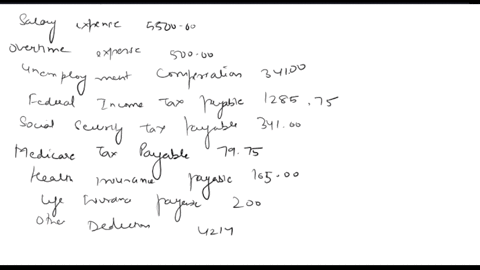 Salary expense 5500.00
Overtime expense 500.00
Unemployment Compensation 341.00
Federal Income Tax payable 1285.75
Social Security tax payable 341.00
Medicare Tax Payable 79.75
Health insurance payable 165.00
Life Insurance payable 200
Other Deductions 4214